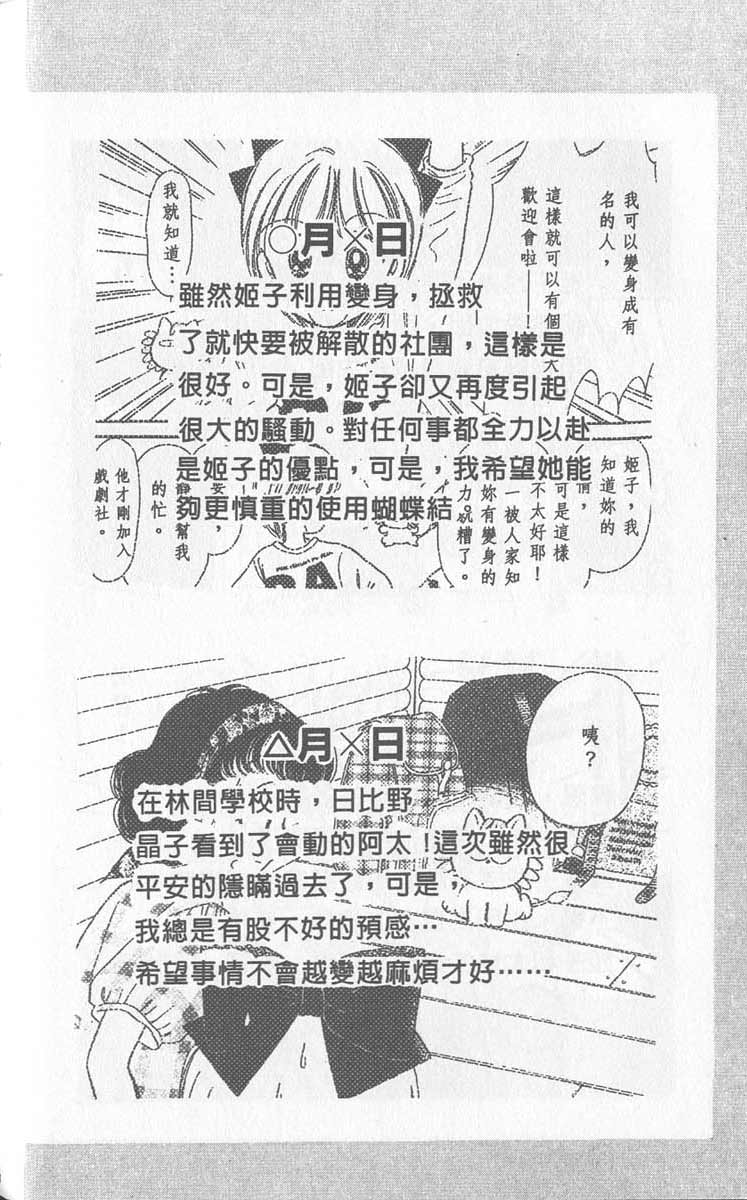 我可以變身成有
名的人，
這樣就可以有個
歡迎會啦——！
大
我就知道…
○月×日
雖然姬子利用變身，拯救
了就快要被解散的社團，這樣是
很好。可是，姬子卻又再度引起
很大的騷動。對任何事都全力以赴
是姬子的優點，可是，我希望她能
夠更慎重的使用蝴蝶結。
姬子，我
知道妳的
可是這樣
不太好耶！
一被人家知
妳有變身的
力就糟了。
幫我
的忙。
他才剛加入
戲劇社。
咦？
△月×日
在林間學校時，日比野
晶子看到了會動的阿太！這次雖然很
平安的隱瞞過去了，可是，
我總是有股不好的預感…
希望事情不會越變越麻煩才好……